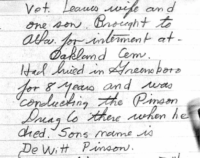 Vet. Leaves wife and
one son. Brought to
Ala. for interment at -
Oakland Cem.
Had lived in Greensboro
for 8 years and was
conducting the Pinson
Drug Co there when he
died. Sons name is
De Witt Pinson.